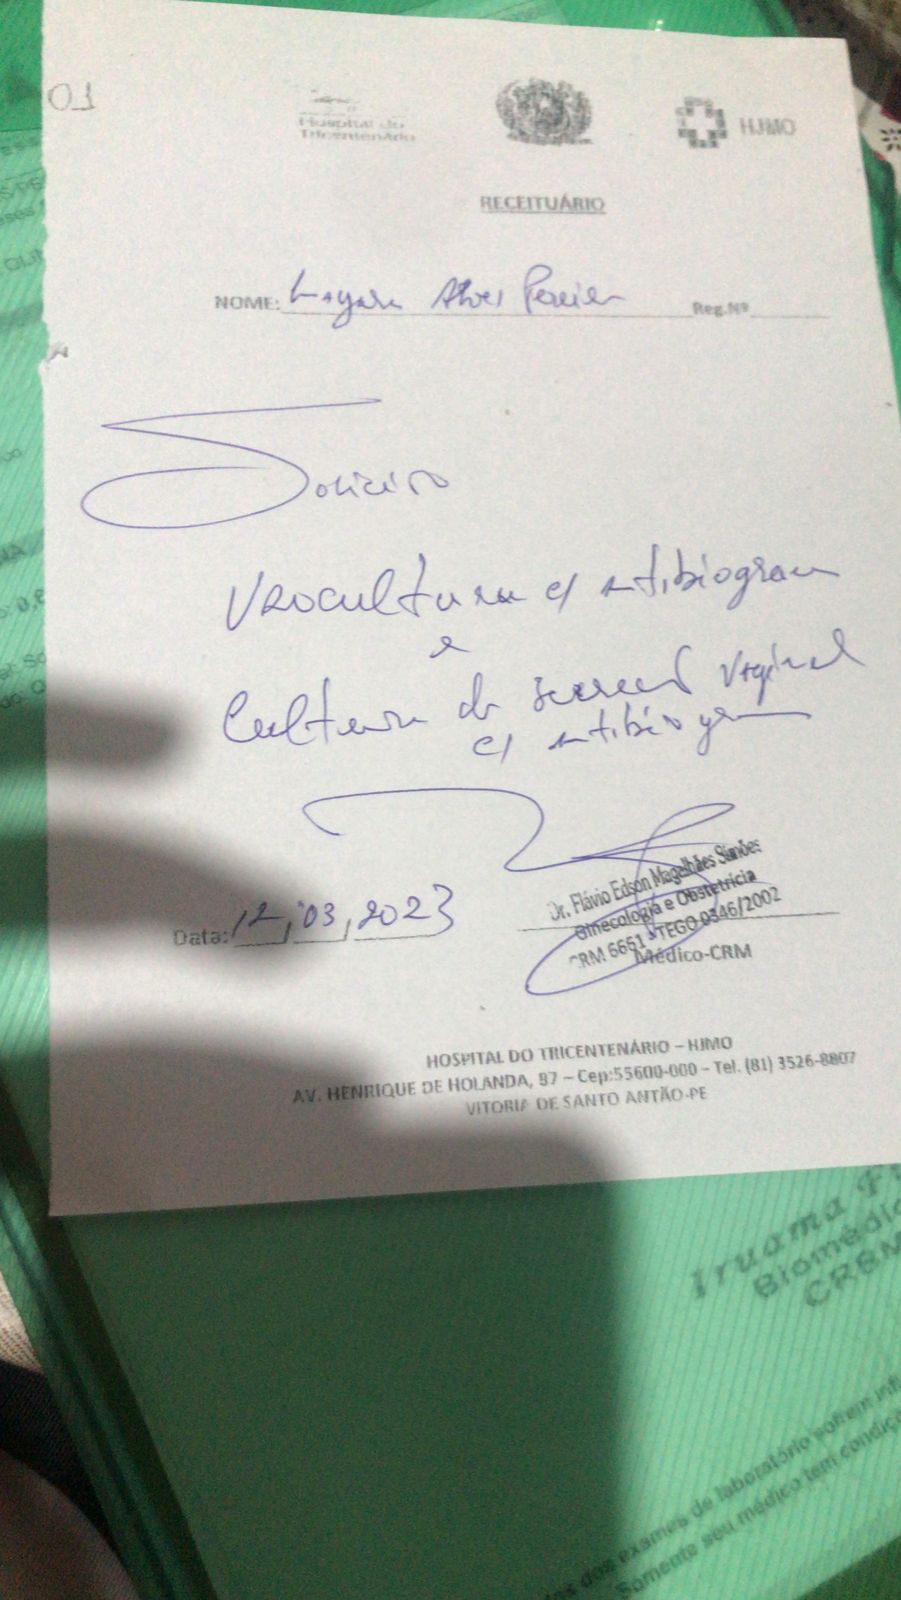 01
Hospital do
Tricentenário
HJMO
RECEITUÁRIO
NOME: Layara Alves Pereira Reg.Nº
Solicito
Urocultura c/ antibiograma
e
Cultura de secreção vaginal
c/ antibiograma
Dr. Flávio Edson Magalhães Simões
Ginecologia e Obstetrícia
CRM 6661 - TEGO 0346/2002
Data: 12, 03, 2023
Médico-CRM
HOSPITAL DO TRICENTENÁRIO – HJMO
AV. HENRIQUE DE HOLANDA, 87 – Cep:55600-000 – Tel. (81) 3526-8807
VITORIA DE SANTO ANTÃO-PE
Iruama
Biomédic
CRBM
dos exames de laboratório sofrem inf
Somente seu médico tem condiç